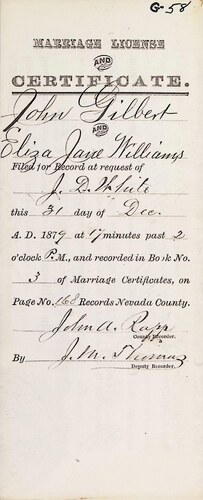 G-58
MARRIAGE LICENSE
AND
CERTIFICATE.
John Gilbert
AND
Eliza Jane Williams
Filed for Record at request of
J. D. White
this 31 day of Dec.
A. D. 1879 at 17 minutes past 2
o'clock P.M., and recorded in Book No.
3 of Marriage Certificates, on
Page No. 168 Records Nevada County.
John A. Rapp
County Recorder.
By J. M. Thomas
Deputy Recorder.